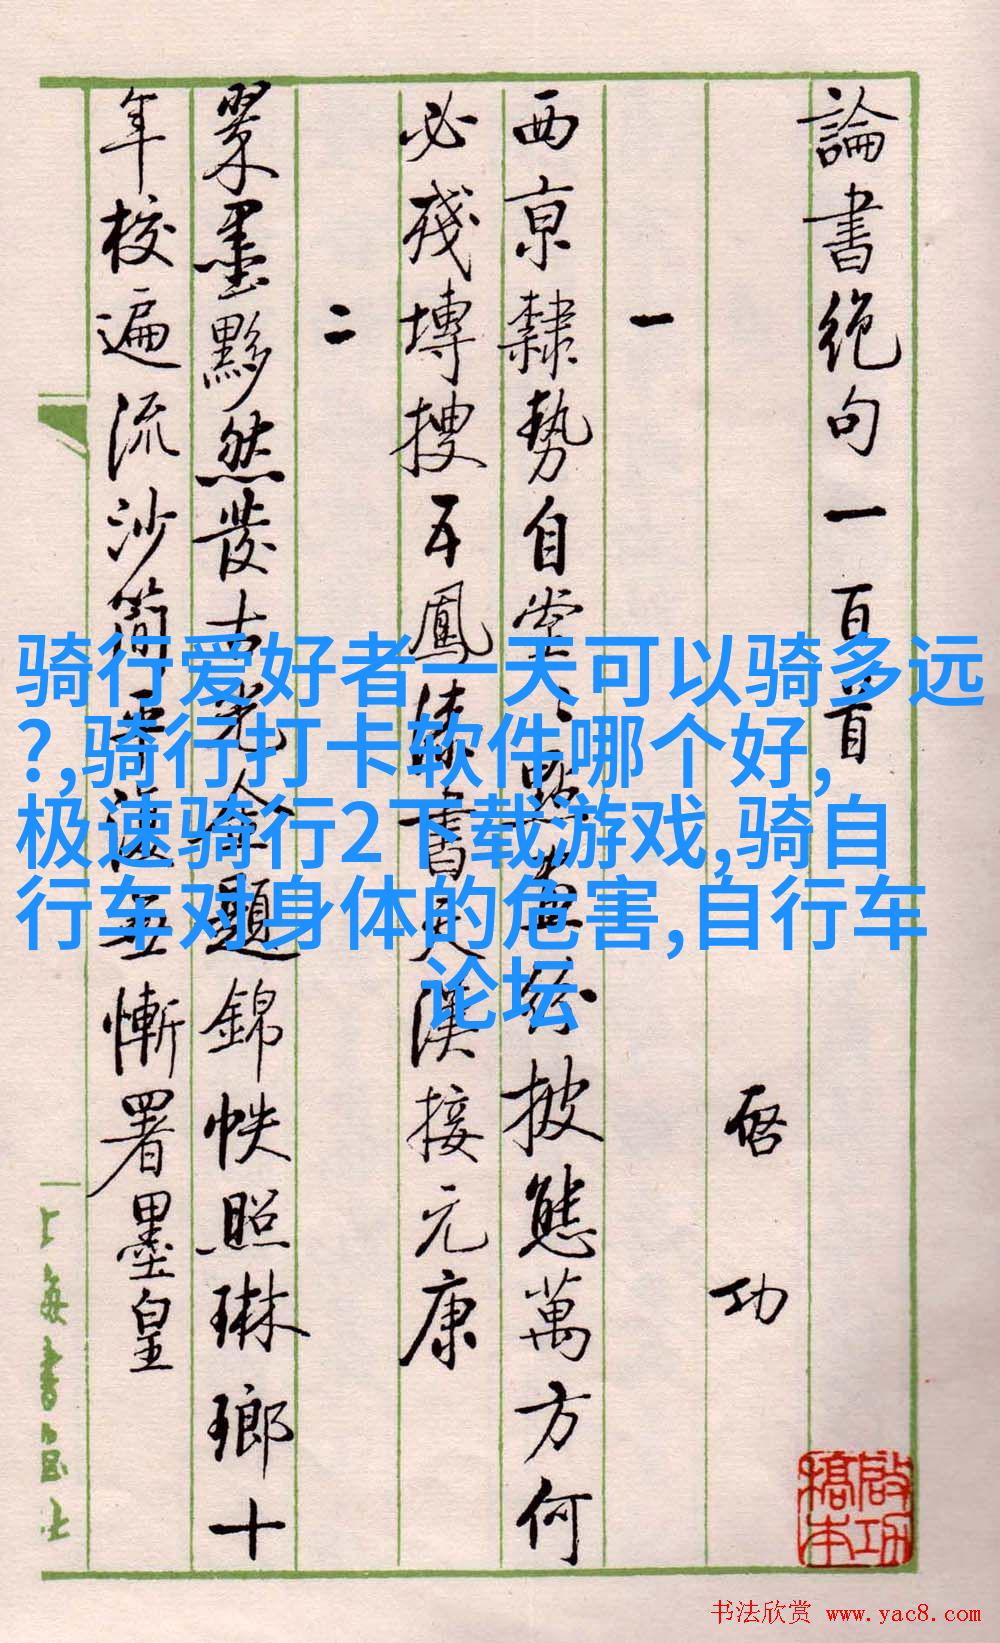 論書絕句一百首
启功
一
西京隸勢自堂々點畫紛披態萬方何
必殘塼搜五鳳漆書天漢接元康
二
翠墨黟然發古光金題錦帙照琳瑯十
年校遍流沙簡平復無慚署墨皇
上海書画社
啟功
稿本
骑行爱好者一天可以骑多远
?,骑行打卡软件哪个好,
极速骑行2下载游戏,骑自
行车对身体的危害,自行车
论坛
书法欣赏 www.yac8.com